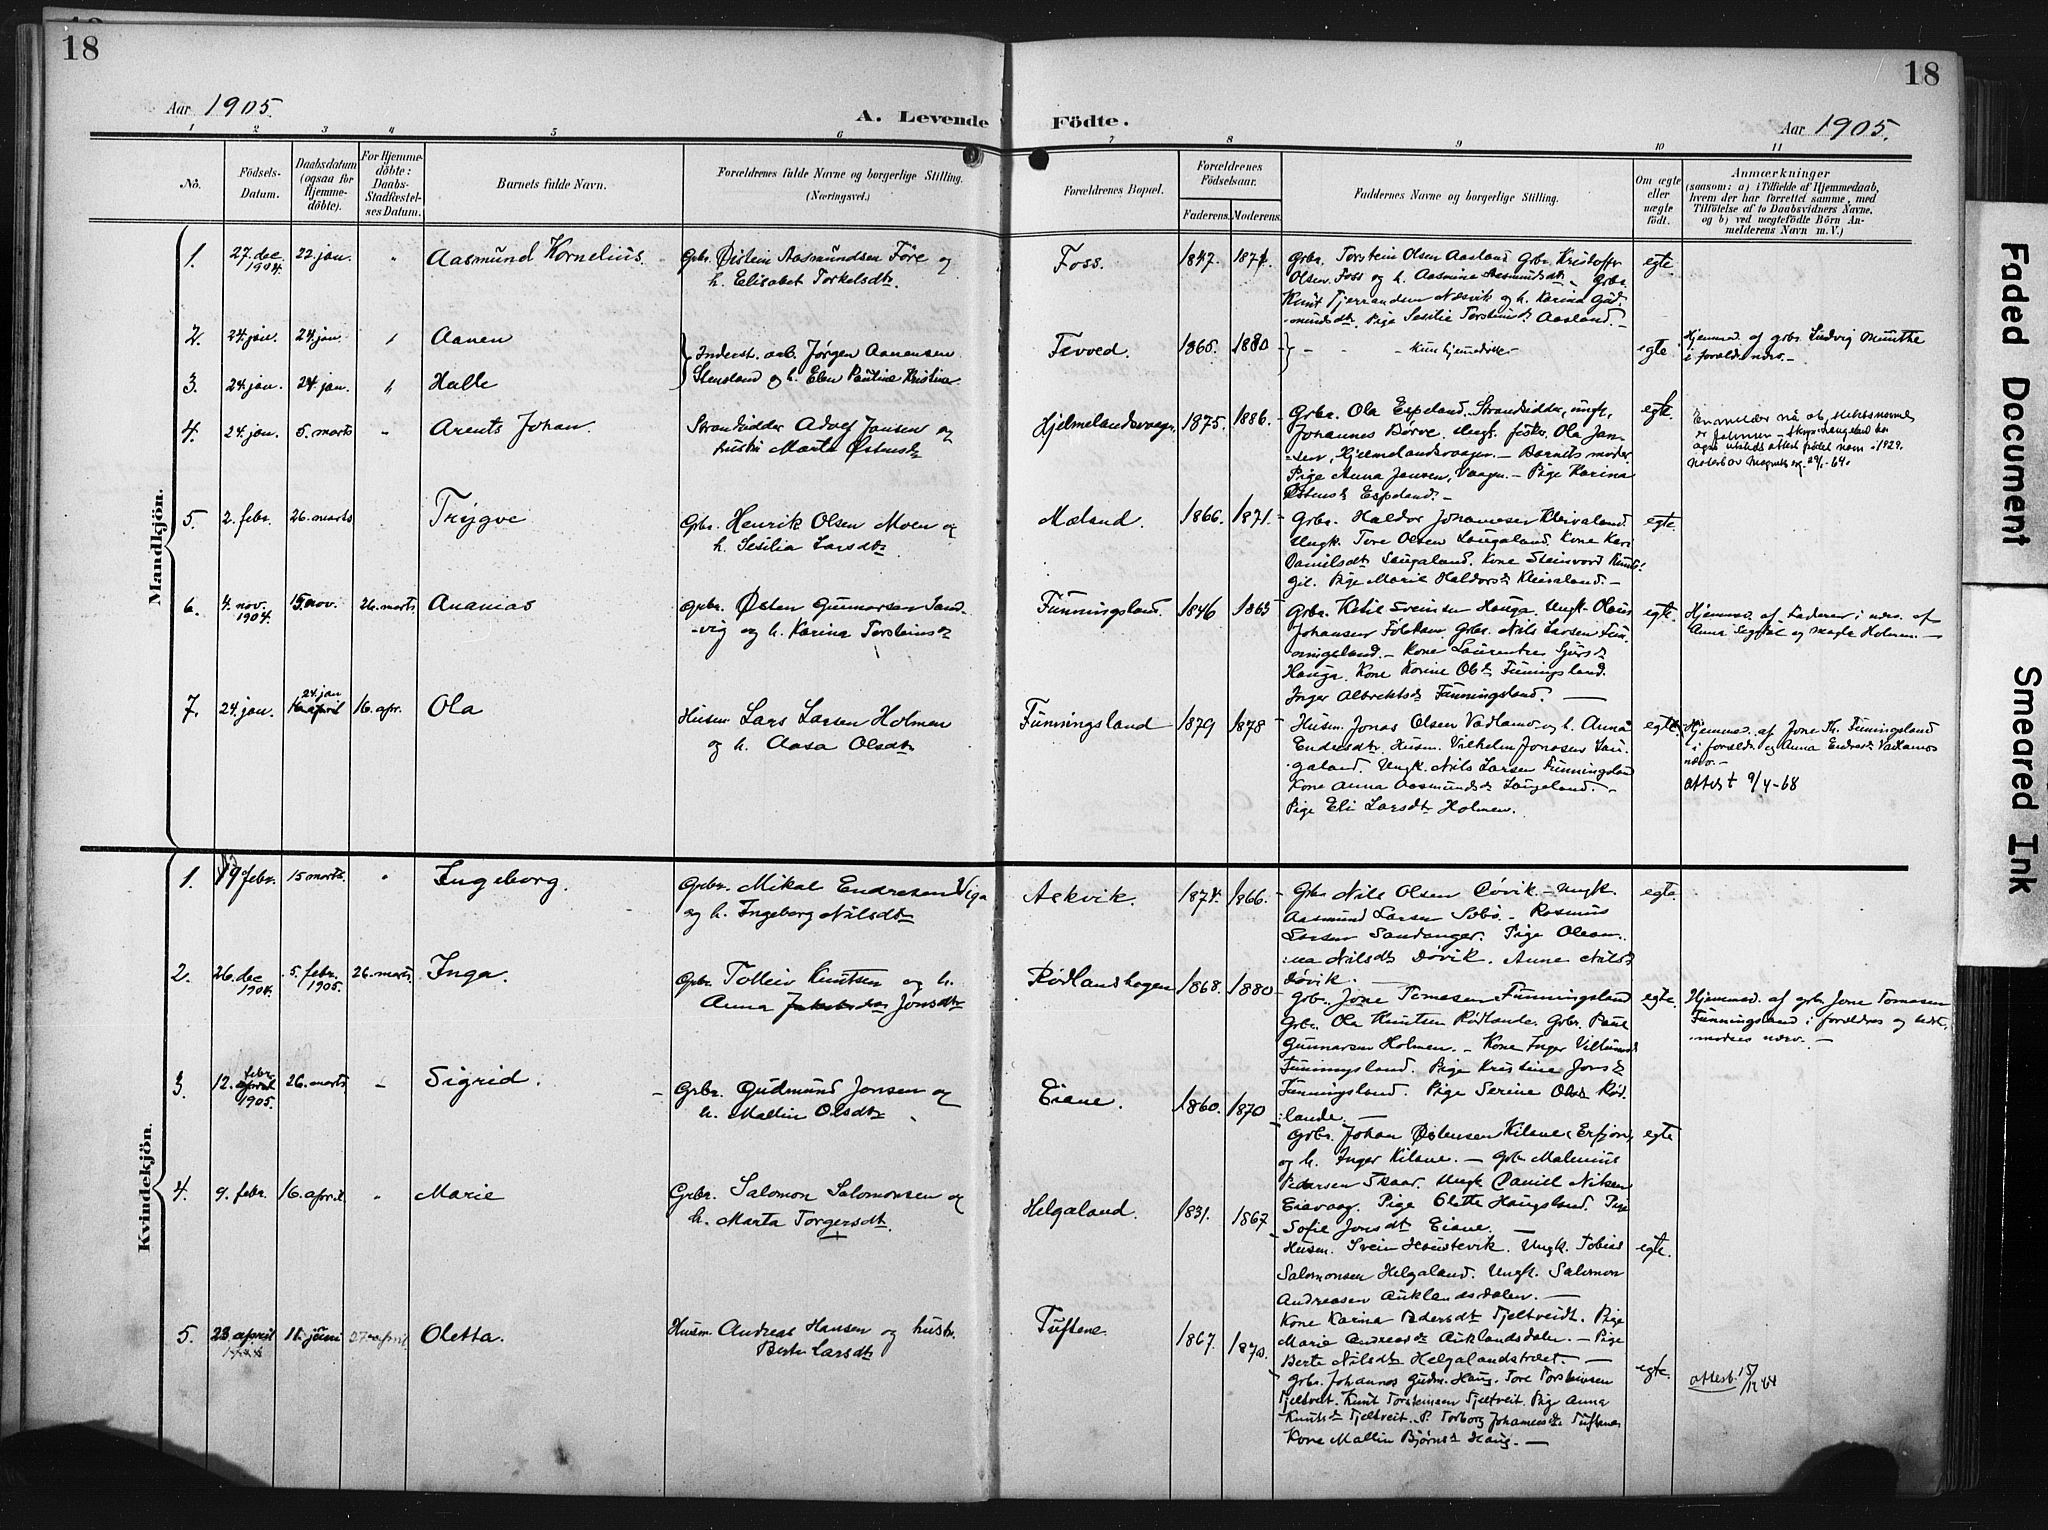 18
18
Aar 1905.
A. Levende Födte.
Aar 1905.
1 2 3 4 5 6 7 8 9 10 11
No.
Födsels-Datum.
Daabsdatum (ogsaa for Hjemmedöbte).
For Hjemmedöbte: Daabs-Stadfæstelses Datum.
Barnets fulde Navn.
Forældrenes fulde Navne og borgerlige Stilling. (Næringsvei.)
Forældrenes Bopæl.
Forældrenes Födselsaar.
Faderens. Moderens.
Faddernes Navne og borgerlige Stilling.
Om ægte eller uægte födt.
Anmærkninger
(saasom: a) i Tilfælde af Hjemmedaab,
hvem der har forrettet samme, med
Tilföielse af to Daabsvidners Navne,
og b) ved uægtefödte Börn Anmelderens Navn m. V.)
Mandkjön.
1. 27. dec. 1904. 22. jan. " Aasmund Kornelius. Grbr. Øistein Aasmundsen Före og
h. Elisabet Torkelsdtr.
Foss. 1847. 1871.
Grbr. Torstein Olsen Aasland Grbr. Kristoffer
Olsen Foss og h. Aasmine Aasmundsdtr. Grbr.
Knut Tjerrandsen Næsvik og h. Karina Gud-
mundsdtr. Pige Sesilie Torsteinsdr Aasland. –
egte.
2. 24. jan. 24. jan. " Aanen
3. 24. jan. 24. jan. " Halle
Inderst. arb. Jørgen Aanensen
Stensland og h. Elen Pautine Kristine
Tevoed. 1865. 1880
- - kun hjemmedøbte
egte
Hjemmed. af grbr. Ludvig Munthe
i foreldr. nærv. –
4. 24. jan. 5. marts " Arents Johan. Strandsidder Adolf Jansen og
hustru Marta Østensdtr
Hjelmelandsvaagen. 1875. 1886.
Grbr. Ola Espeland. Strandsidder, ungk.
Johannes Børve. Ungk. fisker Ola Jan-
sen, Hjelmelandsvaagen. – Barnets moder
Pige Anna Jansen, Vaagen. – Pige Karina
Østensdr Espeland. –
egte.
5. 2. febr. 26. marts Trygve Grbr. Henrik Olsen Moen og
h. Sesilia Larsdtr.
Mæland. 1866. 1871.
Grbr. Haldor Johannesen Kleivaland.
Ungk. Tore Olsen Laugaland. Kone Kari
Danielsdtr Laugaland. Kone Steinvord
Pige Marie Haldorsdr Kleivaland. –
egte.
6. 4. nov. 1904. 15. nov. 26. marts Ananias Grbr. Østen Gunnarsen Sand-
vig og h. Karina Torsteinsdr
Funningsland. 1846 1865
Grbr. Ketil Sveinsen Hauga. Ungk. Olaus
Johansen Folstan. Grbr. Nils Larsen Fun-
ningsland. – Kone Laurentse Sjursdr
Hauga. Kone Korine Olsdr Funningsland.
Inger Albrektsdr Funningsland. –
egte.
Hjemmed. af Faderen i nærv. af
Anna Segedal og Magla Holmen. –
7. 24. jan. 24. jan 16. april 16. apr. Ola Husm. Lars Larsen Holmen
og h. Aasa Olsdtr.
Funningsland 1879 1878
Husm. Jonas Olsen Vadlamo og h. Anna
Endresdtr. Husm. Vilhelm Jonasen Lau-
galand. Ungk. Nils Larsen Funningsland
Kone Anna Aasmundsdr Laugeland. –
Pige Eli Larsdtr Holmen.
egte.
Hjemmed. af Jone Th. Funningsland
i foreldr. og Anna Endresdr Vadlamos
nærv. –
attest 9/4-68
Kvindekjön.
1. 19 febr. 15 marts. " Ingeborg. Grbr. Mikal Endresen Viga
og h. Ingeborg Nilsdtr
Askvik. 1874. 1866.
Grbr Nils Olsen Døvik. – Ungk.
Aasmund Larsen Sobø. – Rasmus
Larsen Sandanger. Pige Olean-
na Nilsdtr Døvik. Anne Nilsdr
Døvik. –
egte.
2. 26. dec 1904. 5. febr. 1905. 26. marts. Inga. Grbr. Tolleiv Knutsen og h.
Anna Jonsdtr
Rødlandshagen 1868. 1880
Grbr. Jone Tomasen Funningsland
Grbr. Ola Knutsen Rødlande. Grbr. Paul
Gunnarsen Holmen. – Kone Inger
Funningsland. Pige Kristine Jonsdr
Funningsland. Pige Serine Olsdr Rød-
lande. –
egte.
Hjemmed. af grbr Jone Tomasen
Funningsland i forældres og bedst-
morses nærv. –
3. 12. febr. april 1905. 26. marts. – Sigrid. Grbr. Gudmund Jonsen og
h. Mallin Olsdtr.
Eiane. 1860. 1870
Grbr. Johan Østensen Kilane, Erfjord,
og h. Inger Kilane. – Grbr Malenius
Pedersen Skaar. Ungk Daniel Nilsen
Eiavaag. Pige Olette Haugsland. Pige
Sofie Jonsdtr Eiane. –
egte
4. 9. febr. 16. april " Marie Grbr. Salomon Salomonsen og
h. Marta Torgersdtr
Helgaland. 1831. 1867
Husm. Svein Haustevik. Ungk. Tobias
Salomonsen Helgaland. Ungk. Salomon
Andreasen Auklandsdalen. –
Kone Karina Pedersdtr Tjeltveidt. Pige
Marie Andreasdr Auklandsdalen. – Pige
Berte Nilsdtr Helgalandstræet. –
egte.
5. 23. april 11. juni 27. april Oletta. Husm. Andreas Hansen og hustr.
Berte Larsdtr
Tuftene. 1867. 1870.
Grbr. Johannes Gudm. Haug. Tore Torsteinsen
Tjeltveit. Knut Torsteinsen Tjeltveit. Pige Anna
Knutsdr Tjeltveit. P. Torborg Johannesdr Tuftene
Kone Mallin Bjørnsdr Haug. –
egte.
attest. 15/12 64
Faded Document
Smeared Ink